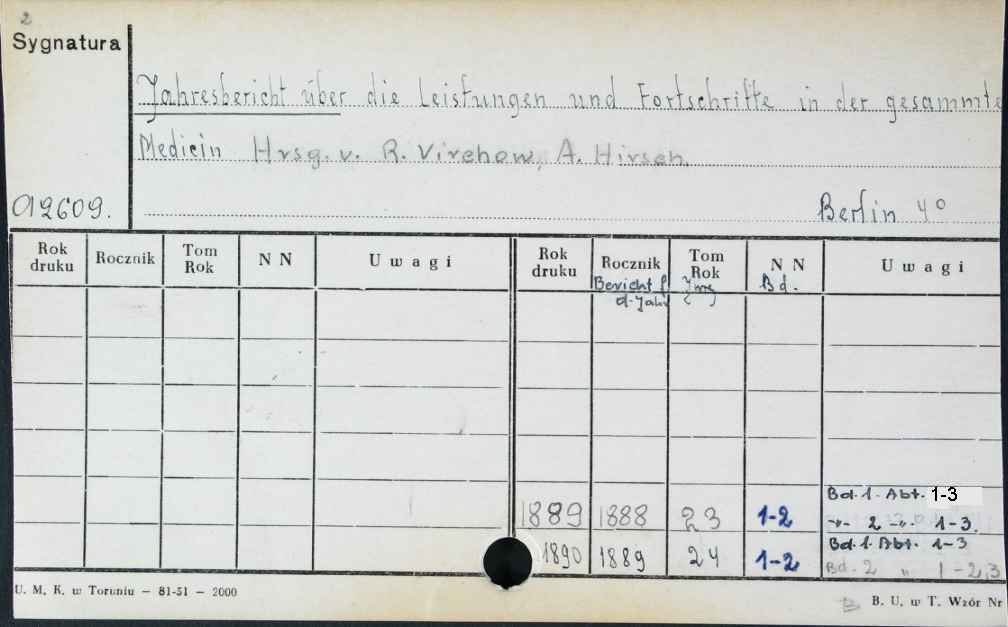 2
Sygnatura
Jahresbericht über die Leistungen und Fortschritte in der gesammte
Medicin Hrsg. v. R. Virchow, A. Hirsch.
09609.
Berlin 4°
Rok druku Rocznik Tom Rok N N Uwagi Rok druku Rocznik Tom Rok N N Uwagi
Bericht f. d. Jahr Jhrg Bd.
Bd. 1. Abt. 1-3
1889 1888 23 1-2 -"- 2 -"- 1-3.
Bd. 1. Abt. 1-3
1890 1889 24 1-2 Bd. 2 " 1-2,3
U. M. K. w Toruniu — 81-51 — 2000
B. U. w T. Wzór Nr